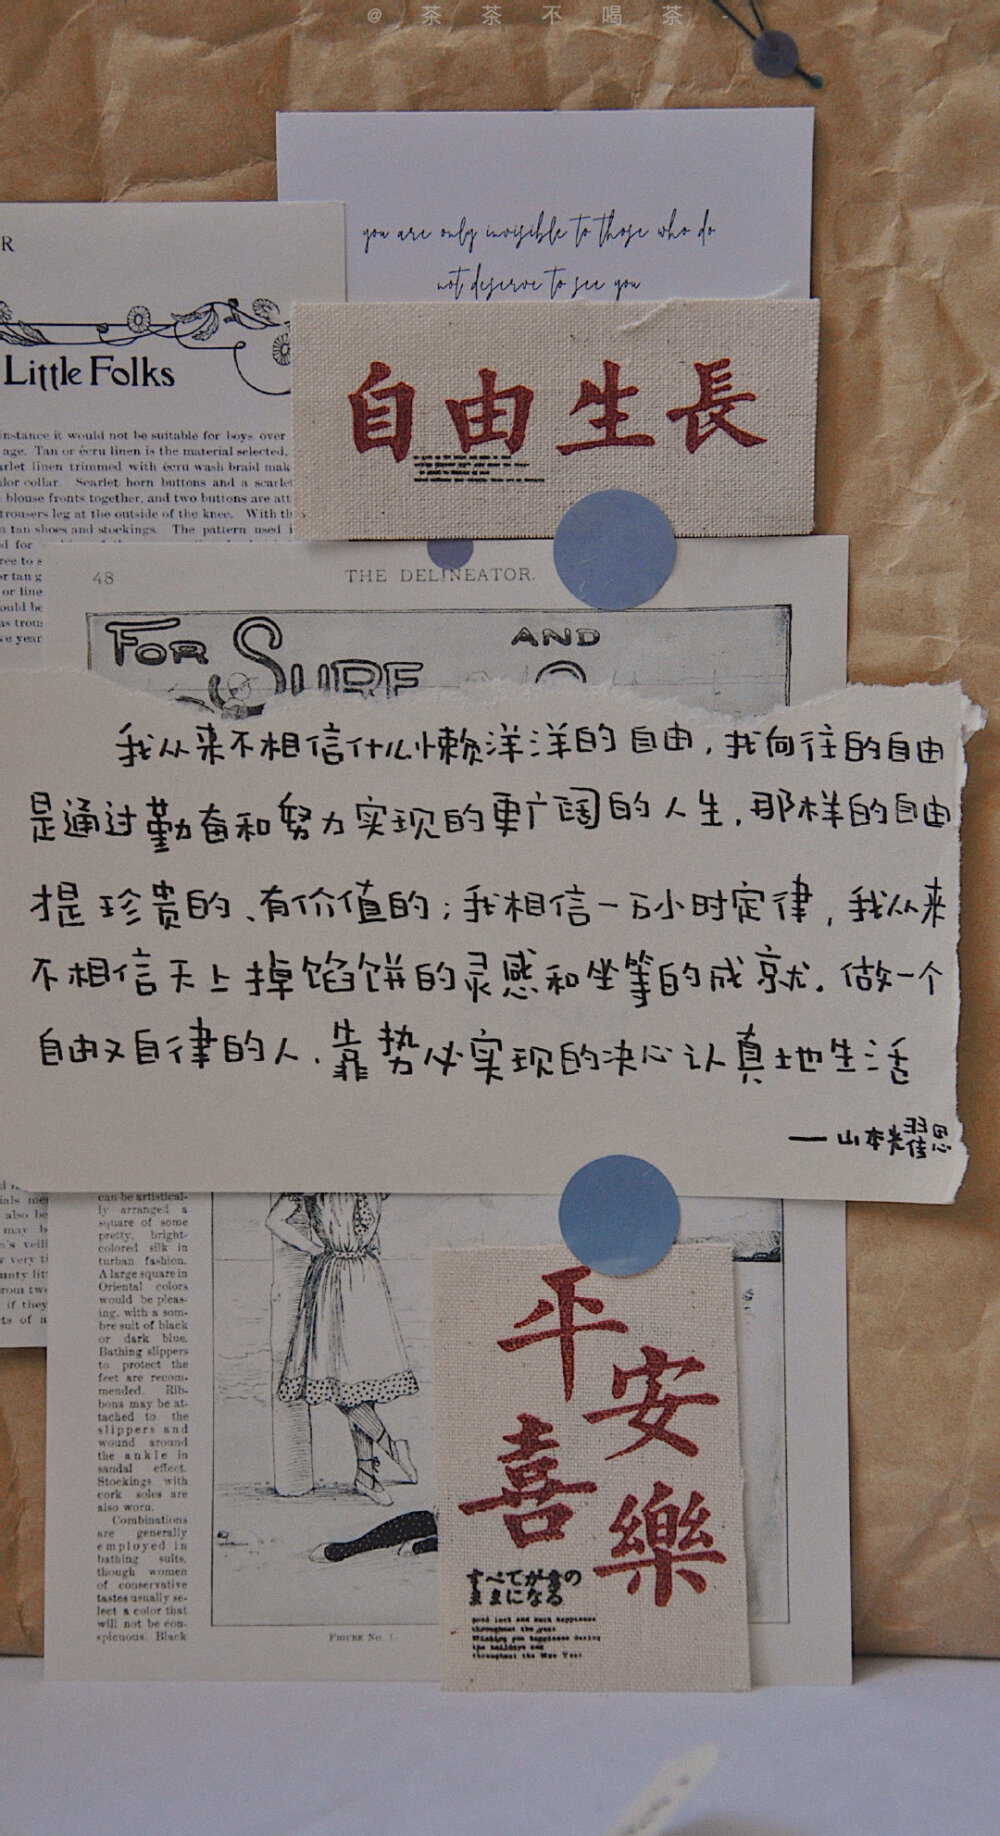 @茶茶不喝茶-
you are only invisible to those who do
not deserve to see you
R
Little Folks
instance it would not be suitable for boys over
age. Tan or écru linen is the material selected,
arlet linen trimmed with écru wash braid mak
lor collar. Scarlet horn buttons and a scarlet
blouse fronts together, and two buttons are att
trousers leg at the outside of the knee. With th
n tan shoes and stockings. The pattern used i
d for
ree to s
or tan g
or line
ould be
as trou
ve year
自由生長
48
THE DELINEATOR.
FOR SURF AND
我从来不相信什么懒洋洋的自由,我向往的自由
是通过勤奋和努力实现的更广阔的人生,那样的自由
才是珍贵的、有价值的;我相信一万小时定律,我从来
不相信天上掉馅饼的灵感和坐等的成就。做一个
自由又自律的人,靠势必实现的决心认真地生活
——山本耀思
ials me
also be
may b
's veili
very t
unty lit
rom two
if they
ts of a
can be artistical-
ly arranged a
square of some
pretty, bright-
colored silk in
turban fashion.
A large square in
Oriental colors
would be pleas-
ing, with a som-
bre suit of black
or dark blue.
Bathing slippers
to protect the
feet are recom-
mended. Rib-
bons may be at-
tached to the
slippers and
wound around
the ankle in
sandal effect.
Stockings with
cork soles are
also worn.
Combinations
are generally
employed in
bathing suits,
though women
of conservative
tastes usually se-
lect a color that
will not be con-
spicuous. Black
FIGURE NO. 1.
平安
喜樂
すべてが意の
ままになる
good luck and much happiness
throughout the year
Wishing you happiness during
the holidays and
throughout the New Year